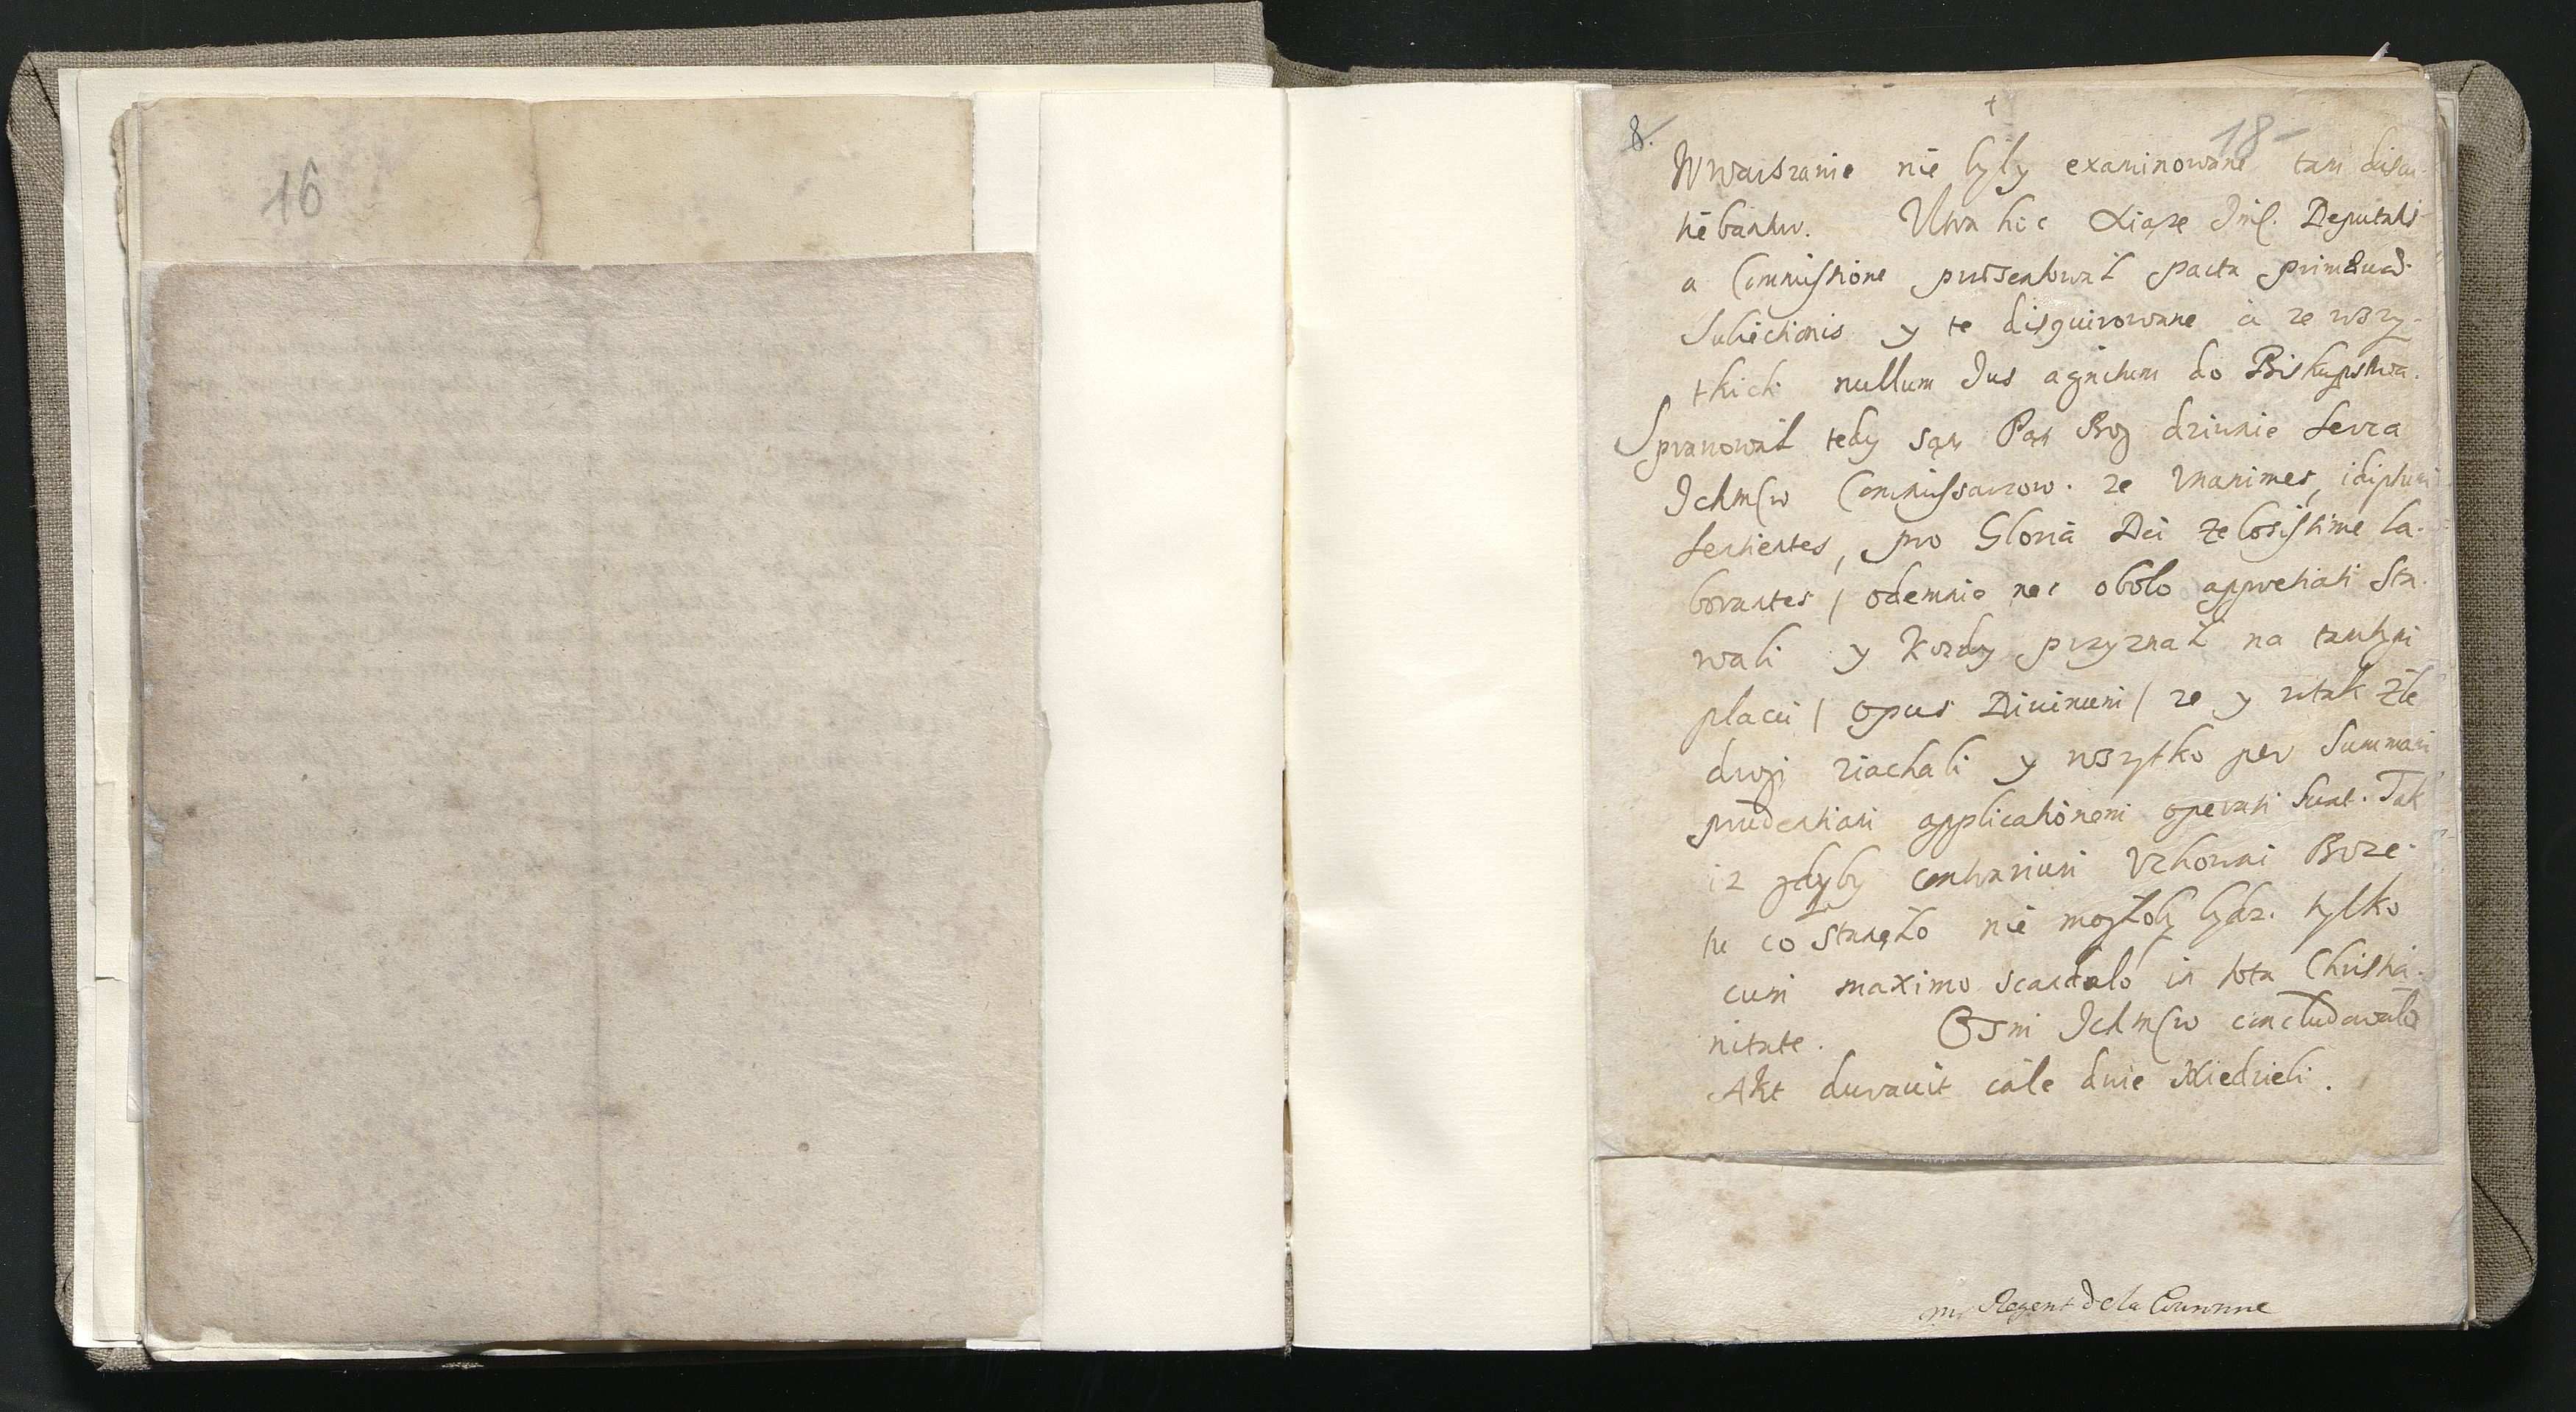 16
8.
18
†
W warszawie nie były examinowane tam discu-
tiebantur. Ultra hic Xiąze Jmć. Deputatis
a Commissione praesentował pacta primaeuae
Subiectionis y te disquirowane à ze wszy-
tkich nullum Jus agnitum do Biskupstwa.
Sprawował tedy sąm Pąn Bog dziwnie serca
Ichmćw Commissarzow. ze vnanimes, idipsum
sentientes, pro Gloria Dei zelosissime la-
borantes / odemnie nec obolo appretiati sta-
wali y kozdy przyznał na tamtym
placu / opus Diuinum / ze y w tak złe
drogi ziachali y wszytko per summam
prudentiam applicationem operati sunt. Tak
iz gdyby contrarium Vchoway Boze.
tu co stanęło nie mogłoby bydz. tylko
cum maximo scandalo in tota Christia-
nitate. Osmi Ichmćw concludowało
Akt durauit całe dwie Niedzieli.
m. Regent de la Couronne